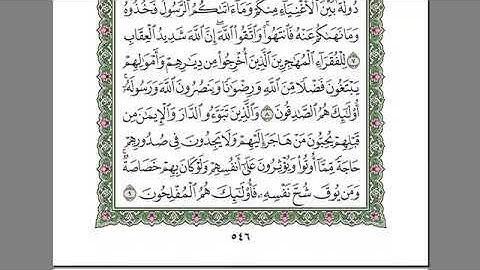 دُولَةَۢ بَيۡنَ ٱلۡأَغۡنِيَآءِ مِنكُمۡۚ وَمَآ ءَاتَىٰكُمُ ٱلرَّسُولُ فَخُذُوهُ
وَمَا نَهَىٰكُمۡ عَنۡهُ فَٱنتَهُواْۚ وَٱتَّقُواْ ٱللَّهَۖ إِنَّ ٱللَّهَ شَدِيدُ ٱلۡعِقَابِ
٧ لِلۡفُقَرَآءِ ٱلۡمُهَٰجِرِينَ ٱلَّذِينَ أُخۡرِجُواْ مِن دِيَٰرِهِمۡ وَأَمۡوَٰلِهِمۡ
يَبۡتَغُونَ فَضۡلٗا مِّنَ ٱللَّهِ وَرِضۡوَٰنٗا وَيَنصُرُونَ ٱللَّهَ وَرَسُولَهُۥٓۚ
أُوْلَٰٓئِكَ هُمُ ٱلصَّٰدِقُونَ ٨ وَٱلَّذِينَ تَبَوَّءُو ٱلدَّارَ وَٱلۡإِيمَٰنَ مِن
قَبۡلِهِمۡ يُحِبُّونَ مَنۡ هَاجَرَ إِلَيۡهِمۡ وَلَا يَجِدُونَ فِي صُدُورِهِمۡ
حَاجَةٗ مِّمَّآ أُوتُواْ وَيُؤۡثِرُونَ عَلَىٰٓ أَنفُسِهِمۡ وَلَوۡ كَانَ بِهِمۡ خَصَاصَةٞۚ
وَمَن يُوقَ شُحَّ نَفۡسِهِۦ فَأُوْلَٰٓئِكَ هُمُ ٱلۡمُفۡلِحُونَ ٩
٥٤٦